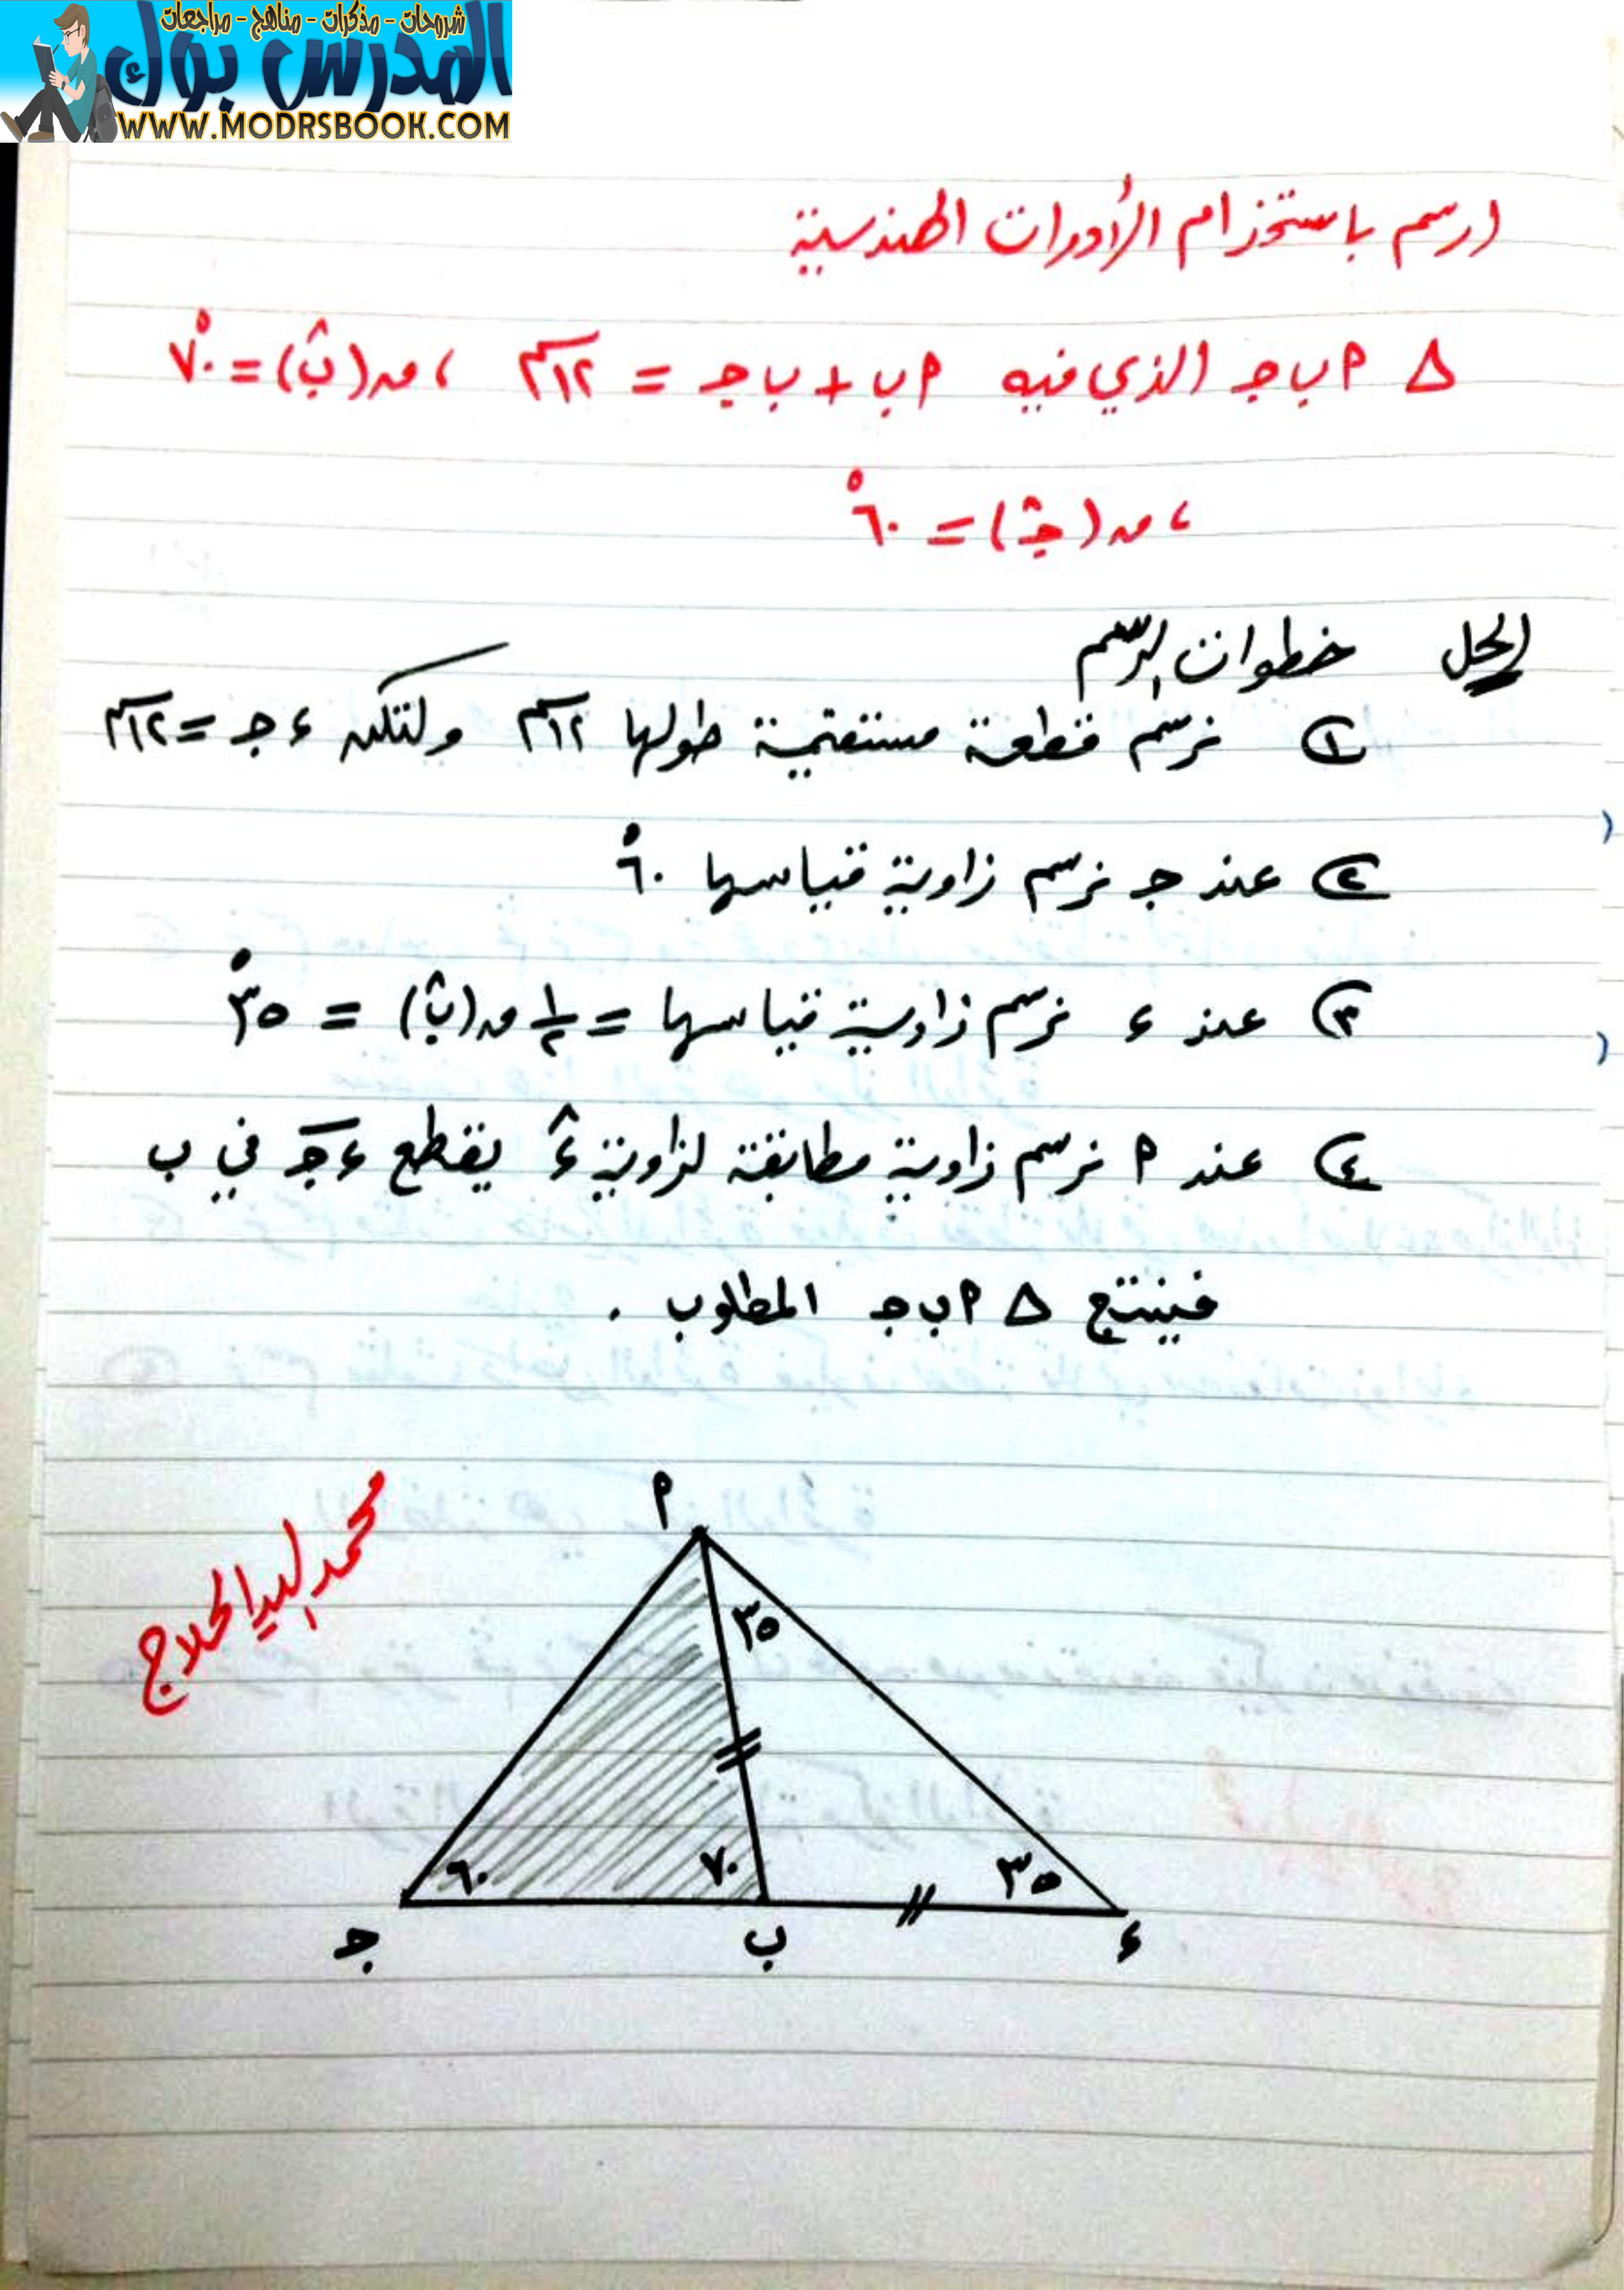 شروحات - مذكرات - مناهج - مراجعات
المدرس بوك
WWW.MODRSBOOK.COM
ارسم باستخدام الأدوات الهندسية
△ ‎أ ب ج الذي فيه أب + ب ج = ١٢سم ، ق(ب̂) = ٧٠°
، ق(ج̂) = ٦٠°
الحل خطوات الرسم
① نرسم قطعة مستقيمة طولها ١٢سم ولتكن ء ج = ١٢سم
② عند ج نرسم زاوية قياسها ٦٠°
③ عند ء نرسم زاوية قياسها = ١/٢ ق(ب̂) = ٣٥°
④ عند أ نرسم زاوية مطابقة لزاوية ء̂ يقطع ء ج في ب
فينتج △ أ ب ج المطلوب .
محمد السيد الحلاج
أ
٣٥
٦٠ ٧٠ ٣٥
ج ب ء